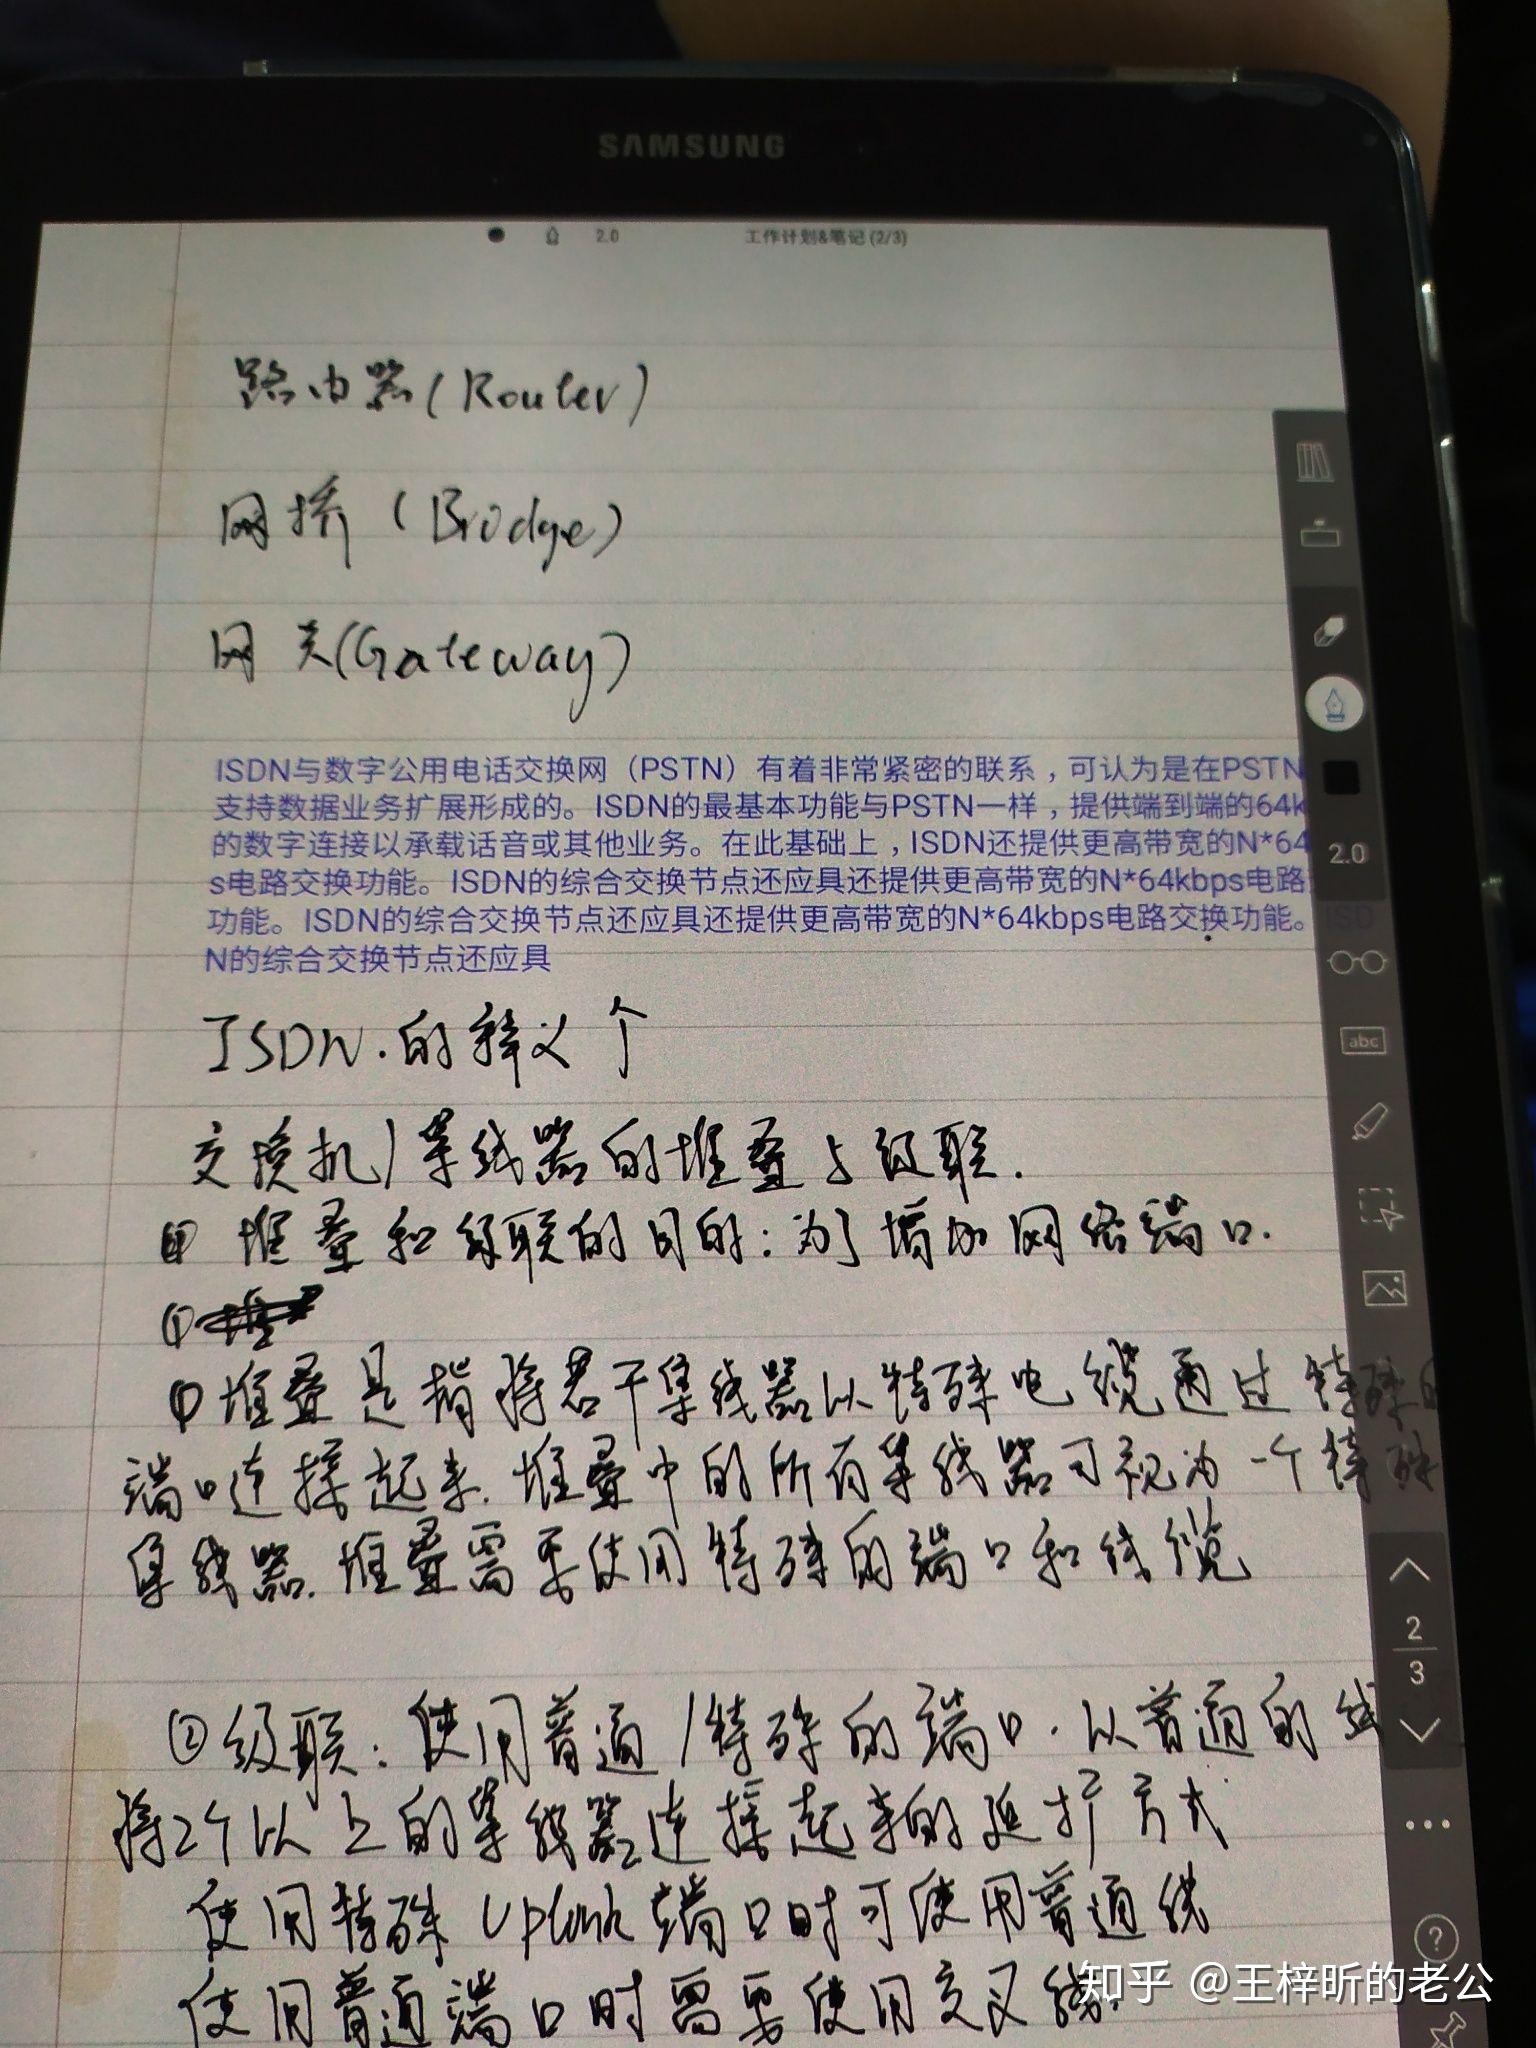 SAMSUNG
2.0 工作计划&笔记 (2/3)
路由器(Router)
网桥 (Bridge)
网关(Gateway)
ISDN与数字公用电话交换网（PSTN）有着非常紧密的联系，可认为是在PSTN
支持数据业务扩展形成的。ISDN的最基本功能与PSTN一样，提供端到端的64k
的数字连接以承载话音或其他业务。在此基础上，ISDN还提供更高带宽的N*64
s电路交换功能。ISDN的综合交换节点还应具还提供更高带宽的N*64kbps电路
功能。ISDN的综合交换节点还应具还提供更高带宽的N*64kbps电路交换功能。ISD
N的综合交换节点还应具
2.0
abc
ISDN.的释义个
交换机/集线器的堆叠与级联.
堆叠和级联的目的:为了增加网络端口.
①
①堆叠是指将若干集线器以特殊电缆通过特殊的
端口连接起来.堆叠中的所有集线器可视为一个特殊
集线器.堆叠需要使用特殊的端口和线缆
2
3
②级联:使用普通/特殊的端口.以普通的线
将2个以上的集线器连接起来的延扩方式
使用特殊Uplink端口时可使用普通线
使用普通端口时需要使用交叉线.
知乎 @王梓昕的老公